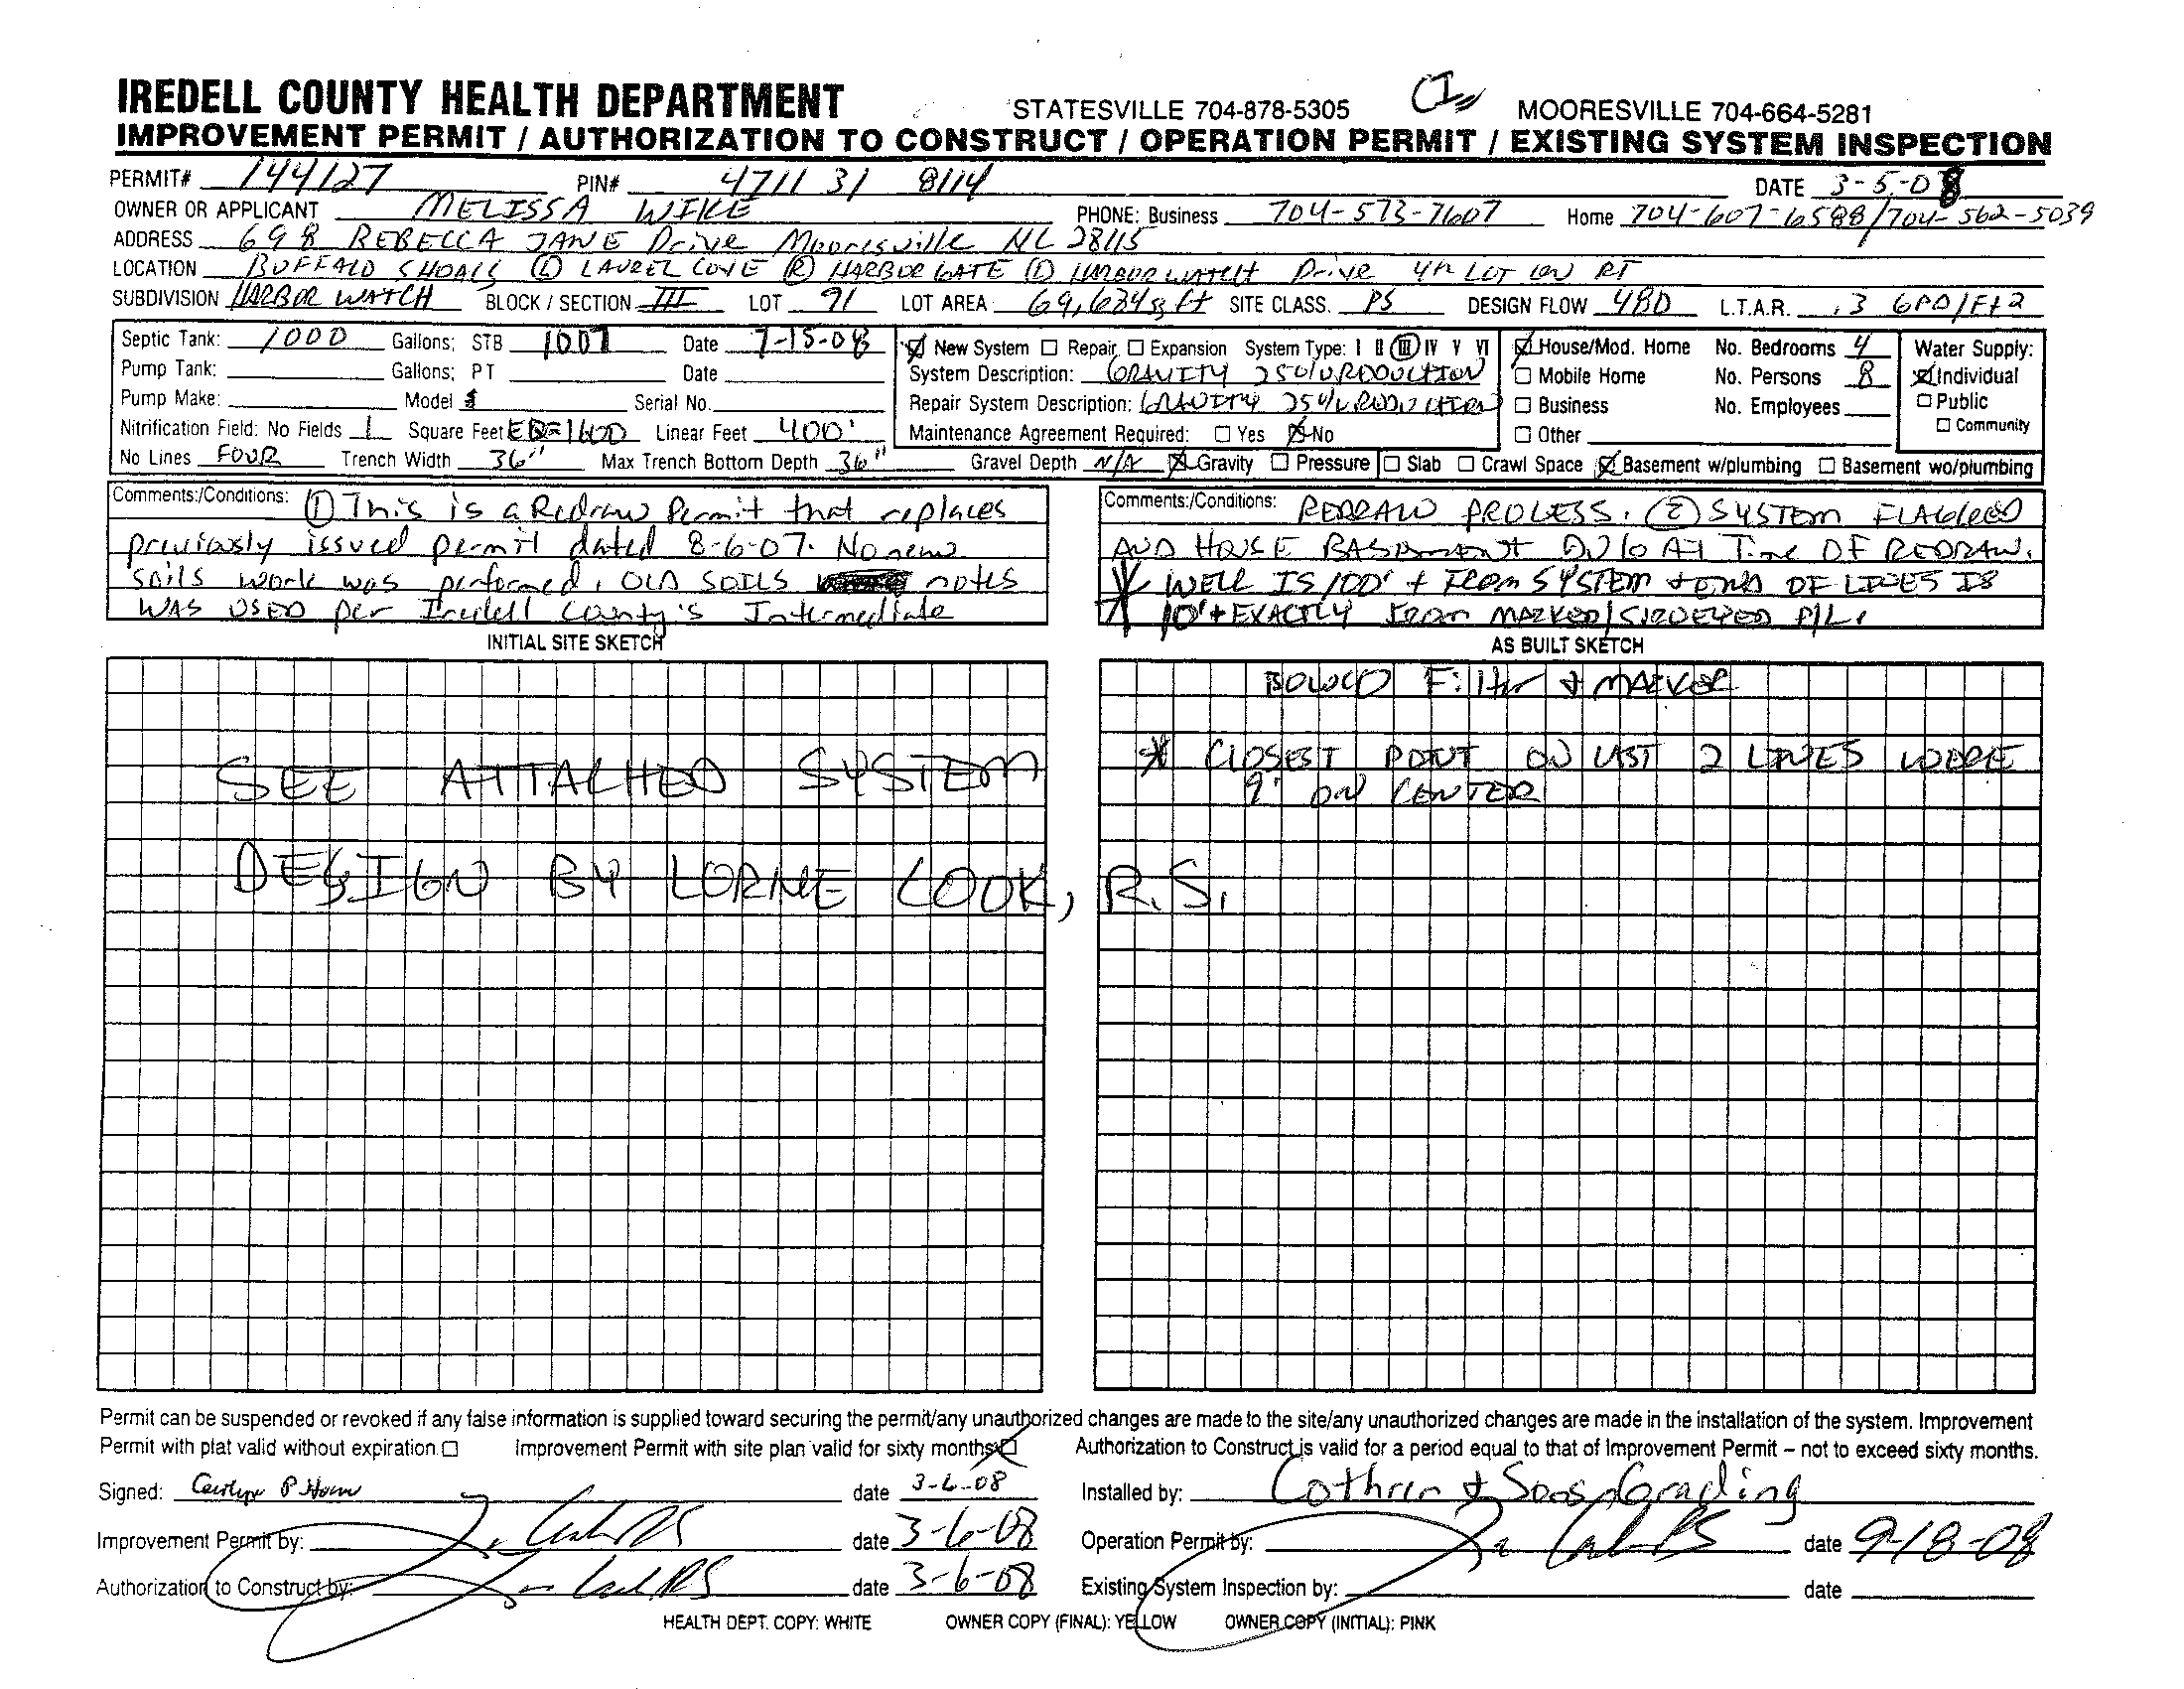 IREDELL COUNTY HEALTH DEPARTMENT STATESVILLE 704-878-5305 CI MOORESVILLE 704-664-5281
IMPROVEMENT PERMIT / AUTHORIZATION TO CONSTRUCT / OPERATION PERMIT / EXISTING SYSTEM INSPECTION
PERMIT# 144127 PIN# 4711 31 8114 DATE 3-5-08
OWNER OR APPLICANT MELISSA WIKE PHONE: Business 704-573-7607 Home 704-607-6588/704-562-5039
ADDRESS 698 REBECCA JANE Drive Mooresville NC 28115
LOCATION BUFFALO SHOALS (L) LAUREL COVE (R) HARBOR GATE (L) HARBOR WATCH Drive 4th LOT ON RT
SUBDIVISION HARBOR WATCH BLOCK / SECTION III LOT 91 LOT AREA 69,684 sq ft SITE CLASS. PS DESIGN FLOW 480 L.T.A.R. .3 GPD/Ft2
Septic Tank: 1000 Gallons; STB 1007 Date 7-15-08
Pump Tank: Gallons; PT Date
Pump Make: Model Serial No.
Nitrification Field: No Fields 1 Square Feet EQ=1600 Linear Feet 400'
No Lines FOUR Trench Width 36" Max Trench Bottom Depth 36" Gravel Depth N/A ☒ Gravity ☐ Pressure ☐ Slab ☐ Crawl Space ☒ Basement w/plumbing ☐ Basement wo/plumbing
☒ New System ☐ Repair ☐ Expansion System Type: I II III IV V VI
System Description: GRAVITY 25% REDUCTION
Repair System Description: GRAVITY 25% REDUCTION
Maintenance Agreement Required: ☐ Yes ☒ No
☒ House/Mod. Home No. Bedrooms 4
☐ Mobile Home No. Persons 8
☐ Business No. Employees
☐ Other
Water Supply:
☒ Individual
☐ Public
☐ Community
Comments:/Conditions: ① This is a Redraw Permit that replaces
previously issued permit dated 8-6-07. No new
soils work was performed. OLD SOILS notes
WAS USED per Iredell County's Intermediate
Comments:/Conditions: REDRAW PROCESS. ② SYSTEM FLAGGED
AND HOUSE BASEMENT DUG AT Time OF REDRAW.
* WELL IS 100' + FROM SYSTEM + ENDS OF LINES IS
* 10'+ EXACTLY FROM MARKED/SURVEYED P/L.
INITIAL SITE SKETCH
SEE ATTACHED SYSTEM
DESIGN BY LORNE COOK, R.S.
AS BUILT SKETCH
Filter & MARKER
* CLOSEST POINT ON LAST 2 LINES WERE
9' ON CENTER
Permit can be suspended or revoked if any false information is supplied toward securing the permit/any unauthorized changes are made to the site/any unauthorized changes are made in the installation of the system. Improvement
Permit with plat valid without expiration ☐ Improvement Permit with site plan valid for sixty months ☒ Authorization to Construct is valid for a period equal to that of Improvement Permit – not to exceed sixty months.
Signed: date 3-6-08 Installed by: Cothren & Sons Grading
Improvement Permit by: date 3-6-08 Operation Permit by: date 9-18-08
Authorization to Construct by: date 3-6-08 Existing System Inspection by: date
HEALTH DEPT. COPY: WHITE OWNER COPY (FINAL): YELLOW OWNER COPY (INITIAL): PINK